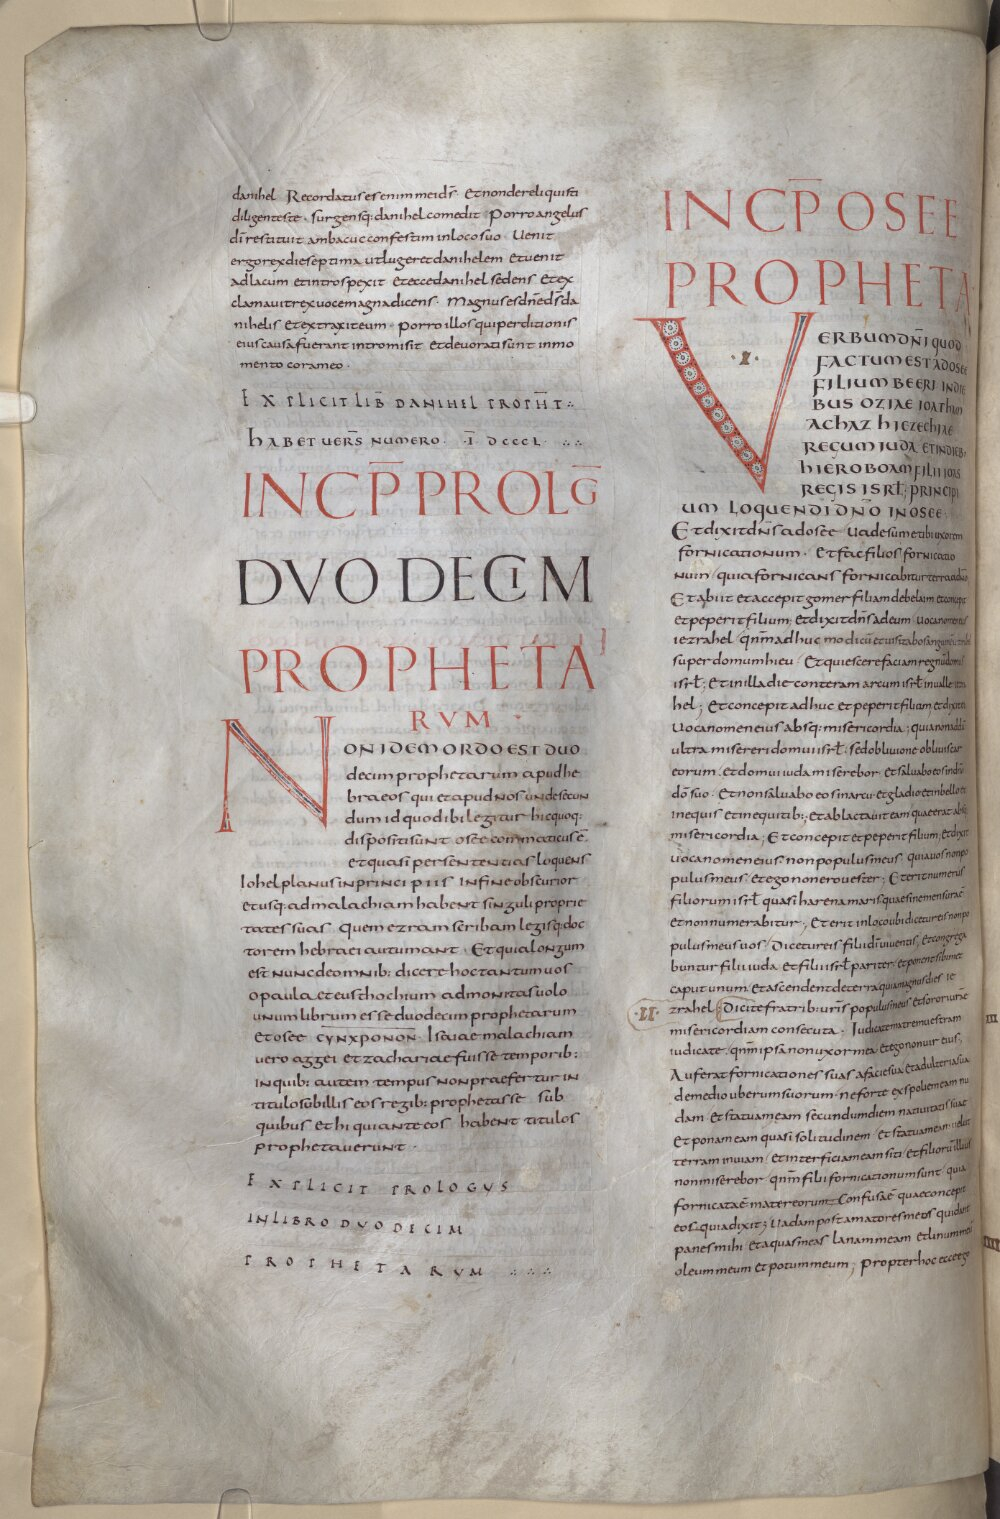 danihel Recordatus es enim mei d̄s̄. Et non dereliquisti
diligentes te. surgensq: danihel comedit Porro angelus
d̄ī restituit ambacuc confestim in loco suo. Uenit
ergo rex die septima ut lugeret danihelem Et uenit
ad lacum et introspexit Et ecce danihel sedens Et ex
clamauit rex uoce magna dicens. Magnus es dn̄e d̄s̄ da
nihelis Et extraxit eum. Porro illos qui perditionis
eius causa fuerant intromisit et deuorati sunt in mo
mento coram eo.
EXPLICIT LIB̄ DANIHEL PROPH̄T:.
HABET UERS̄ NUMERO. Ī DCCCL. ∴ ∴
INCP̄ PROLḠ
DVODECIM
PROPHETA
RVM
NON IDEM ORDO EST DUO
decim prophetarum apud he
braeos qui et apud nos unde secun
dum id quod ibi legitur hic quoq:
dispositi sunt osee commaticus ē
et quasi per sententias loquens
Iohel planus in principiis In fine obscurior
et usq: ad malachiam habent singuli proprie
tates suas Quem ezram scribam legisq: doc
torem hebraei autumant. Et quia longum
est nunc de omnib: dicere hoc tantum uos
o paula et eusthochium admonitas uolo
unum librum esse duodecim prophetarum
et osee CYNXPONON. Isaiae malachiam
uero aggei et zachariae fuisse temporib:
In quib: autem tempus non praefertur in
titulo sub illis eos regib: prophetasse sub
quibus et hi qui ante eos habent titulos
prophetauerunt.
EXPLICIT PROLOGVS
IN LIBRO DVODECIM
PROPHETARVM ∴ ∴ ∴
INCP̄ OSEE
PROPHETA
.I.
VERBUM DN̄I QUOD
FACTUM EST AD OSEE
FILIUM BEERI IN DIE
BUS OZIAE IOATHAM
ACHAZ HIEZECHIAE
REGUM IUDA ET IN DIEB:
HIEROBOAM FILII IOAS
REGIS ISRL̄; PRINCIPI
UM LOQUENDI DN̄O IN OSEE.
Et dixit dn̄s ad osee Uade sume tibi uxorem
fornicationum. Et fac filios fornicatio
num quia fornicans fornicabitur terra a dn̄o
Et abiit et accepit gomer filiam debelaim et concepit
et peperit filium; et dixit dn̄s ad eum Uoca nomen eius
iezrahel qn̄m adhuc modicū et uisitabo sanguinē iezrahel
super domum hieu. Et quiescere faciam regnū domus
isrl̄; Et in illa die conteram arcum isrl̄ in ualle iezra
hel; Et concepit adhuc et peperit filiam et dixit ei
Uoca nomen eius absq: misericordia; quia non addā
ultra misereri domui isrl̄. sed obliuione obliuiscar
eorum. et domui iuda miserebor et saluabo eos in dn̄o
dō suo. Et non saluabo eos in arcu et gladio et in bello et
in equis et in equitib:; et ablactauit eam quae erat absq:
misericordia; Et concepit et peperit filium; et dixit
uoca nomen eius non populus meus. quia uos non po
pulus meus et ego non ero uester; Et erit numerus
filiorum isrl̄ quasi harena maris quae sine mensura ē
et non numerabitur; Et erit in loco ubi dicetur eis non po
pulus meus uos; Dicetur eis filii dī uiuentis, et congrega
buntur filii iuda et filii isrl̄ pariter et ponent sibimet
caput unum. Et ascendent de terra quia magnus dies ie
.II. zrahel; Dicite fratrib: uris̄ populus meus et sorori urāe
misericordiam consecuta. Iudicate matrem uestram
iudicate. qn̄m ipsa non uxor mea et ego non uir eius;
Auferat fornicationes suas a facie sua et adulteria sua
de medio uberum suorum. ne forte expoliem eam nu
dam et statuam eam secundum diem natiuitatis suae
Et ponam eam quasi solitudinem et statuam eam uelut
terram inuiam et interficiam eam siti et filiorū illius
non miserebor qn̄m filii fornicationum sunt quia
fornicata ē mater eorum. Confusa ē quae concepit
eos. quia dixit; Uadam post amatores meos qui dant
panes mihi et aquas meas lanam meam et linum meum
oleum meum et potum meum; Propter hoc ecce ego
III